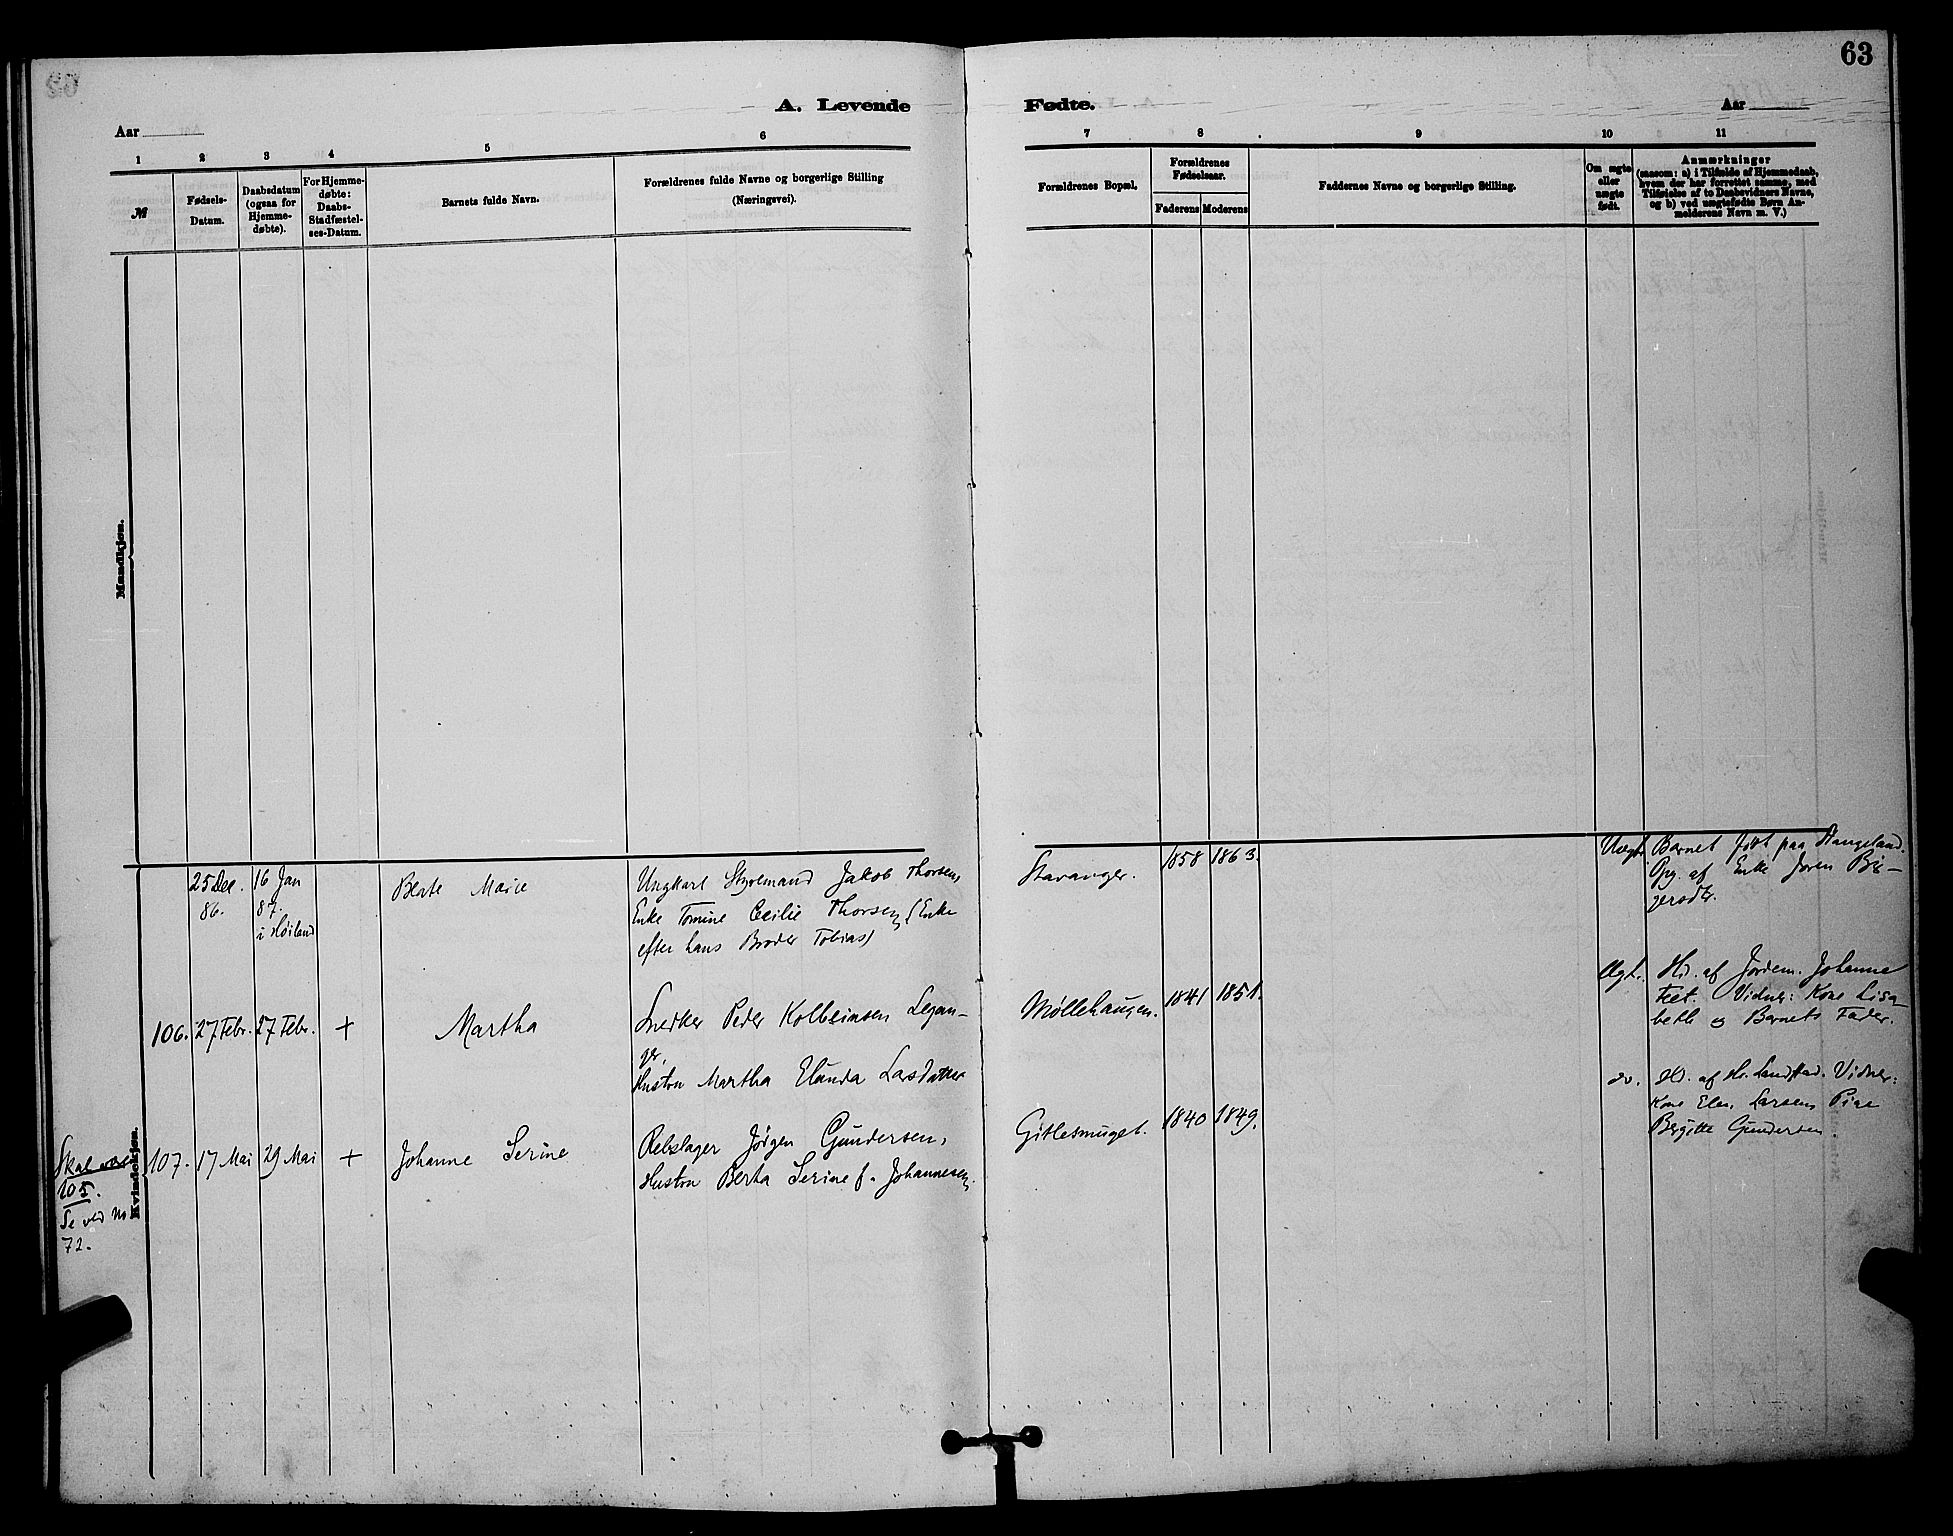 63
A. Levende Fødte.
Aar
Aar
1 2 3 4 5 6 7 8 9 10 11
№
Fødsels-
Datum.
Daabsdatum
(ogsaa for
Hjemme-
døbte).
For Hjemme-
døbte:
Daabs-
Stadfæstel-
ses-Datum.
Barnets fulde Navn.
Forældrenes fulde Navne og borgerlige Stilling
(Næringsvei).
Forældrenes Bopæl.
Forældrenes
Fødselsaar.
Faderens Moderens
Faddernes Navne og borgerlige Stilling.
Om ægte
eller
uægte
født.
Anmærkninger
(saasom: a) i Tilfælde af Hjemmedaab,
hvem der har forrettet samme, med
Tilføielse af to Daabsvidners Navne,
og b) ved uægtefødte Børn An-
melderens Navn m. V.)
Mandkjøn.
Kvindekjøn.
25 Dec.
86.
16 Jan
87.
i Høiland
Berte Marie
Ungkarl Styrmand Jakob Thorsen,
Enke Tomine Cecilie Thorsen (Enke
efter hans Broder Tobias)
Stavanger.
1858 1863.
Uægt.
Barnet født paa Stangeland.
Opg. af Enke Joren Bir-
gersdtr.
106. 27 Febr. 27 Febr. +
Martha
Snedker Peder Kolbeinsen Legan-
ger,
Hustru Martha Elinda Lasdatter
Møllehaugen.
1841 1851.
Ægt.
Hd. af Jordem. Johanne
Teet. Vidner: Kone Lisa-
beth og Barnets Fader.
Skal være
105.
Se ved No
72.
107. 17 Mai 29 Mai +
Johanne Serine
Rebslager Jørgen Gundersen,
Hustru Berta Serine f. Johannesen,
Gitlesmuget.
1840 1849.
do.
Hd. af Hr. Landstad. Vidner:
Kone Elen Larsen, Pige
Bergitte Gundersen.